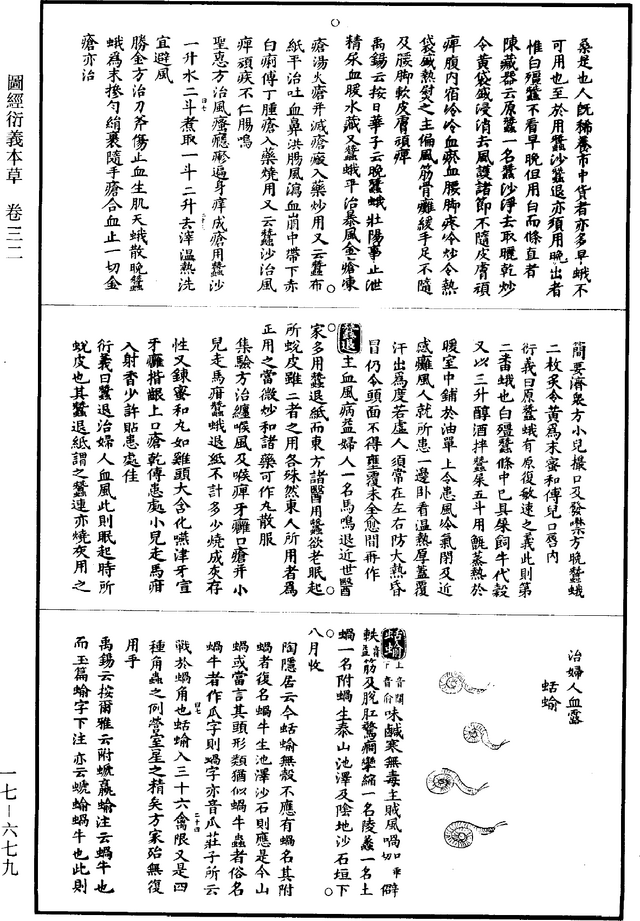 圖經衍義本草　卷三二
桑是也人既稀養市中貨者亦多早蛾不
可用也至於用蠶沙蠶退亦須用晚出者
惟白殭蠶不看早晚但用白而條直者
陳藏器云原蠶一名蠶沙淨去取曬乾炒
令黃袋盛浸酒去風護諸節不隨皮膚頑
痺腹內宿冷冷血瘀血腰脚疼冷炒令熱
袋盛熱熨之主偏風筋骨癱緩手足不隨
及腰脚軟皮膚頑痺
禹錫云按日華子云晚蠶蛾壯陽事止泄
精尿血暖水藏又蠶蛾平治暴風金瘡凍
瘡湯火瘡并滅瘡瘢入藥炒用又云蠶布
紙平治吐血鼻洪腸風瀉血崩中帶下赤
白痢傅丁腫瘡入藥燒用又云蠶沙治風
痺頑疾不仁腸鳴
聖惠方治風瘙癮𤺋遍身痒成瘡用蠶沙
一升水二斗煮取一斗二升去滓溫熱洗
宜避風
勝金方治刀斧傷止血生肌天蛾散晚蠶
蛾爲末摻勻絹裹隨手瘡合血止一切金
瘡亦治
簡要濟衆方小兒撮口及發噤方晚蠶蛾
二枚炙令黃爲末蜜和傅兒口唇內
衍義曰原蠶蛾有原復敏速之義此則第
二番蛾也白殭蠶條中已具屎飼牛代穀
又以三升醇酒拌蠶屎五斗用甑蒸熱於
暖室中鋪於油單上令患風冷氣閉及近
感癱風人就所患一邊卧看溫熱厚蓋覆
汗出爲度若虛人須常在左右防大熱昏
冒仍令頭面不得壅覆未全愈間再作
蠶退主血風病益婦人一名馬鳴退近世醫
家多用蠶退紙而東方諸醫用蠶欲老眠起
所蛻皮雖二者之用各殊然東人所用者爲
正用之當微炒和諸藥可作丸散服
集驗方治纏喉風及喉痺牙癰口瘡并小
兒走馬疳蠶蛾退紙不計多少燒成灰存
性又鍊蜜和丸如雞頭大含化嚥津牙宣
牙癰揩齦上口瘡乾傅患處小兒走馬疳
入射香少許貼患處佳
衍義曰蠶退治婦人血風此則眠起時所
蛻皮也其蠶退紙謂之蠶連亦燒灰用之
治婦人血露
蛞蝓
蛞蝓上音闊下音俞味鹹寒無毒主賊風喎如乖僻
軼音益筋及脫肛驚癇攣縮一名陵蠡一名土
蝸一名附蝸生泰山池澤及陰地沙石垣下
八月收
陶隱居云今蛞蝓無殼不應有蝸名其附
蝸者復名蝸牛生池澤沙石則應是今山
蝸或當言其頭形類猶似蝸牛蟲者俗名
蝸牛者作瓜字則蝸字亦音瓜莊子所云
戰於蝸角也蛞蝓入三十六禽限又是四
種角蟲之例營室星之精矣方家殆無復
用乎
禹錫云按爾雅云附螔蠃蝓注云蝸牛也
而玉篇蝓字下注亦云螔蝓蝸牛也此則
一七－六七九